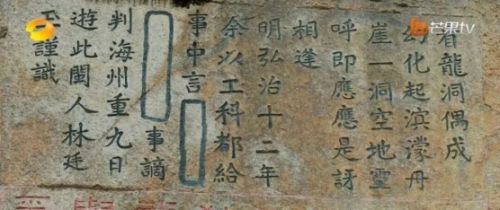 龍洞偶成
幻化起滨濛丹
崖一洞空地靈
呼即應應是訝
相逢
明弘治十二年
余以工科都給
事中言
事謫
判海州重九日
遊此閩人林廷
玉謹識
芒果tv